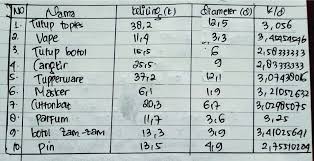 NO Nama keliling (k) diameter (d) k/d
1. Tutup toples 38,2 12,5 3,056
2. Vape 11,4 3,3 3,45454545
3. Tutup botol 15,5 6 2,58333333
4. Cangkir 25,5 9 2,83333333
5. Tupperware 37,2 12,1 3,07438016
6. Masker 6,1 1,9 3,21052632
7. Cuttonbat 20,3 6,7 3,02985075
8. Parfum 11,7 3,6 3,25
9. botol zam-zam 13,3 3,9 3,41025641
10. Pin 13,5 4,9 2,75510204